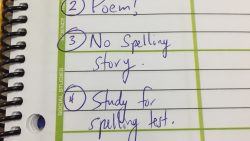 2) Poem!
3) No Spelling
Story.
4) Study for
spelling test.